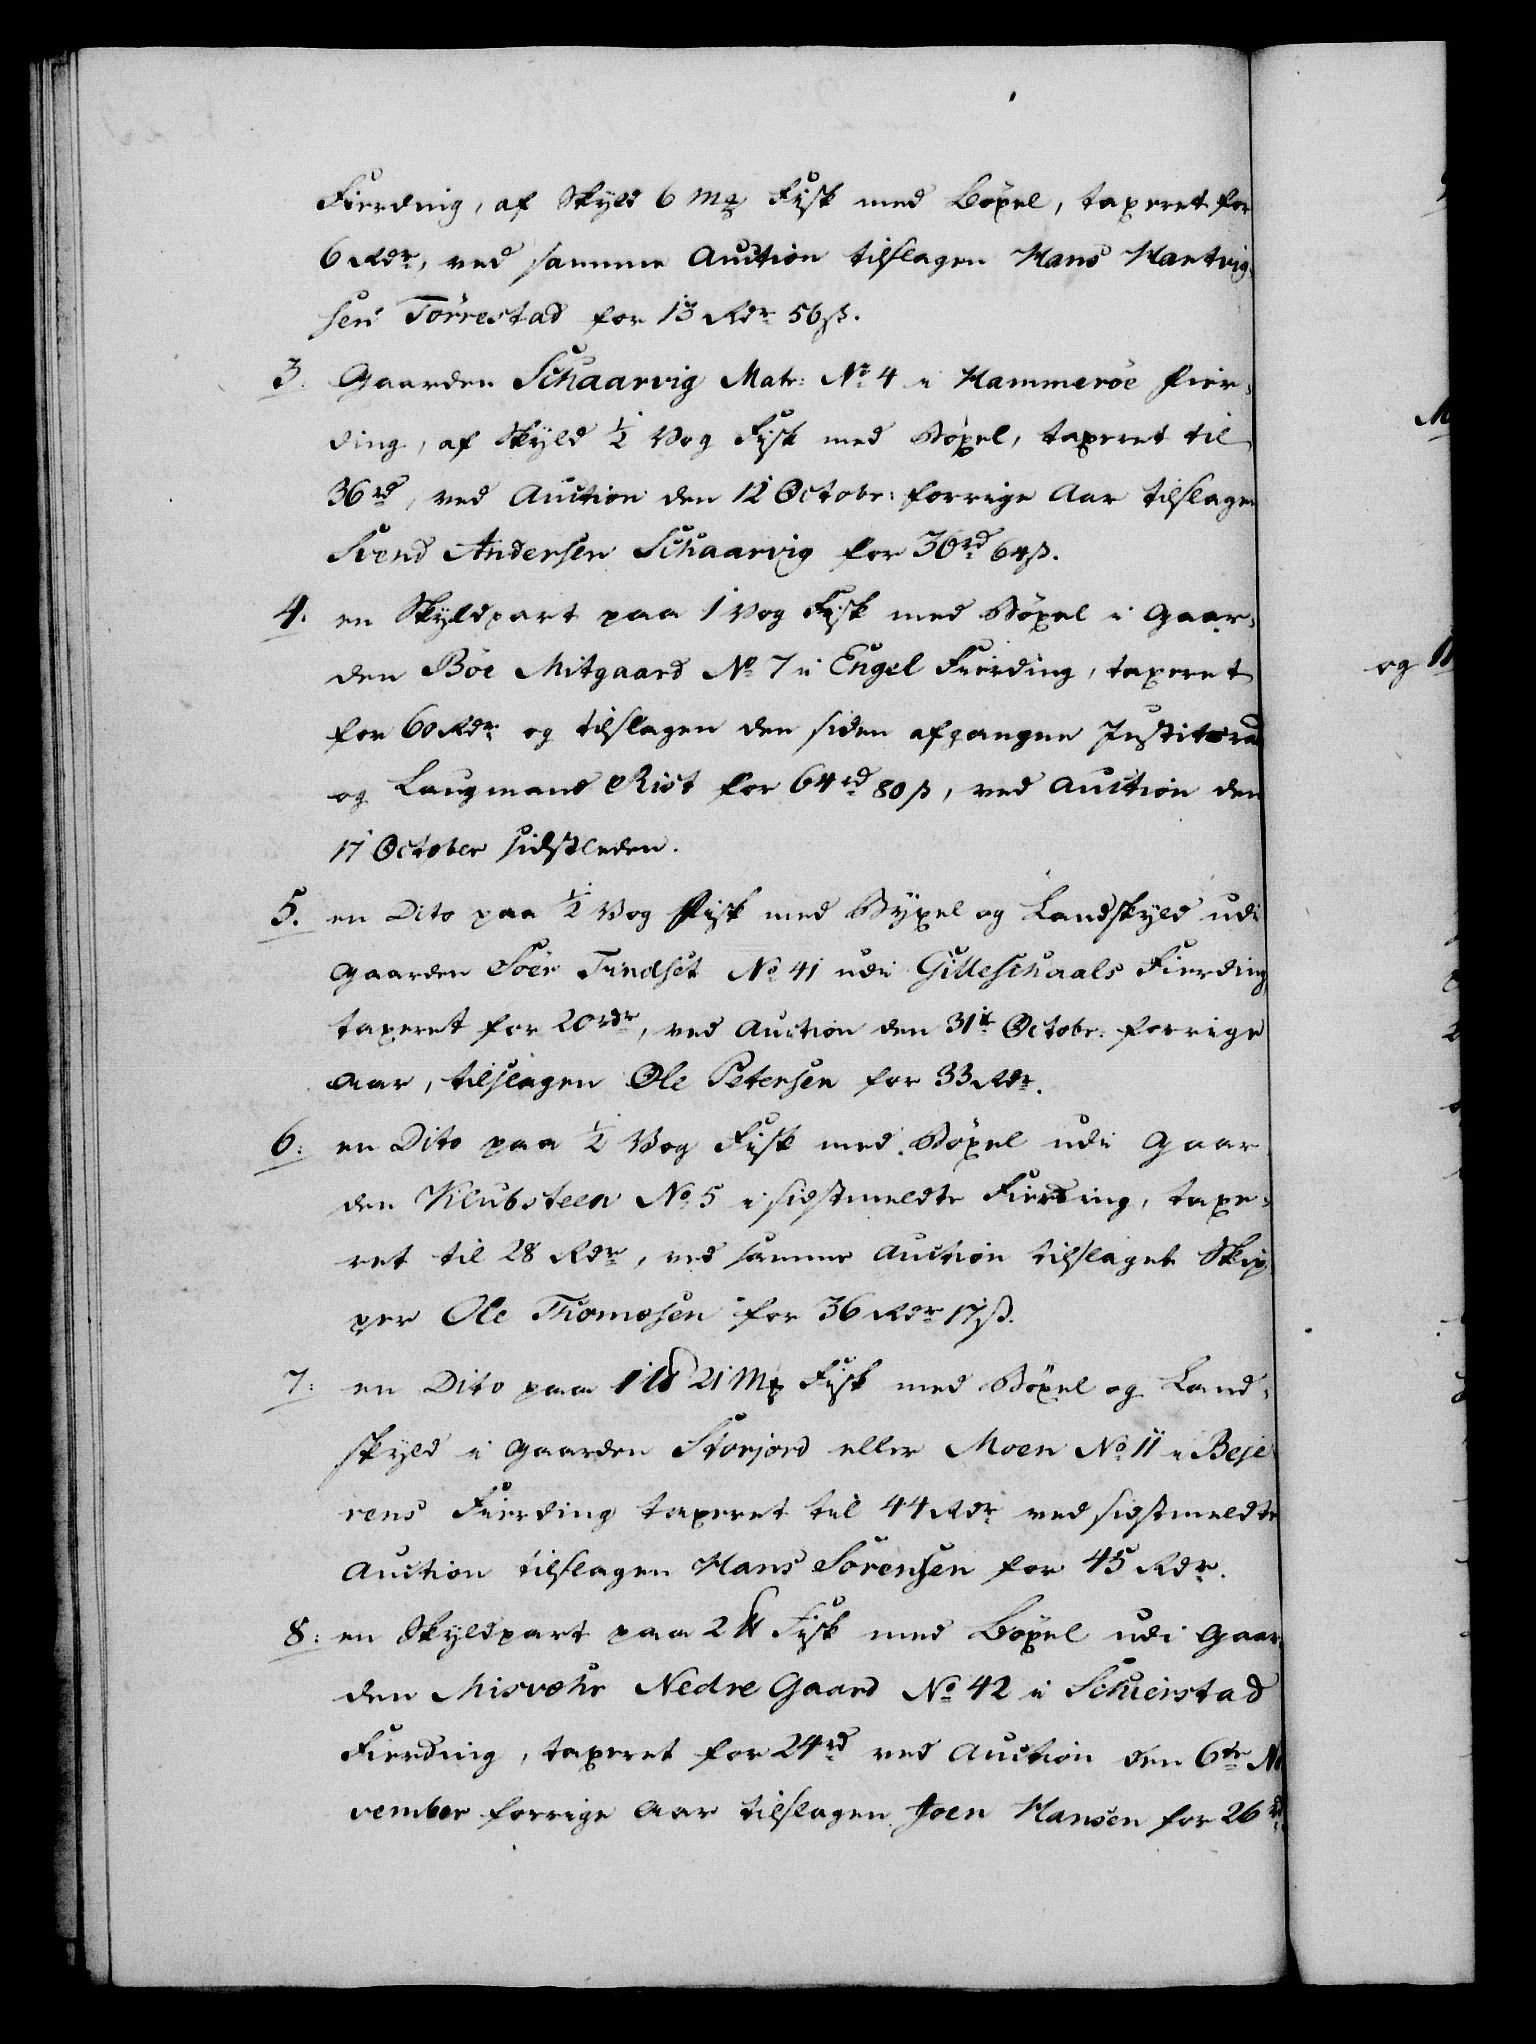 Fierding, af Skyld 6 Mg Fisk med Böxel, taxeret for
6 Rdr, ved samme Auction tilslagen Hans Hartvig-
sen Törrestad for 13 Rdr 56 ß.
3. Gaarden Schaarvig Matr: No 4 i Hammeröe Fier-
ding, af Skyld ½ Vog Fisk med Böxel, taxeret til
36 rd, ved Auction den 12 Octobr: forrige Aar tilslagen
Svend Andersen Schaarvig for 30 rd 64 ß.
4. en Skyldpart paa 1 Vog Fisk med Böxel i Gaar-
den Böe Mitgaard No 7 i Engel Fierding, taxeret
for 60 Rdr og tilslagen den siden afgangne Justitsraad
og Laugmand Rist for 64 rd 80 ß, ved Auction den
17 October sidstleden.
5. en Dito paa ½ Vog Fisk med Byxel og Landskyld udi
Gaarden Söer Tindset No 41 udi Gilleschaals Fierding,
taxeret for 20 rdr, ved Auction den 31te Octobr: forrige
Aar, tilslagen Ole Petersen for 33 Rdr.
6: en Dito paa ½ Vog Fisk med Böxel udi Gaar
den Klubsteen No 5 i sidstmeldte Fierding, taxe-
ret til 28 Rdr, ved samme Auction tilslaget Skip
per Ole Thomesen for 36 Rdr 17 ß.
7: en Dito paa 1 21 Mg Fisk med Böxel og Land-
skyld i Gaarden Storjord eller Moen No 11 i Beje
rens Fierding taxeret til 44 Rdr ved sidstmeldte
Auction tilslagen Hans Sörensen for 45 Rdr.
8: en Skyldpart paa 2 Fisk med Böxel udi Gaar
den Misvæhr Nedre Gaard No 42 i Schierstad
Fierding, taxeret for 24 rd ved Auction den 6te No
vember forrige Aar tilslagen Joen Hansen for 26 rd
og